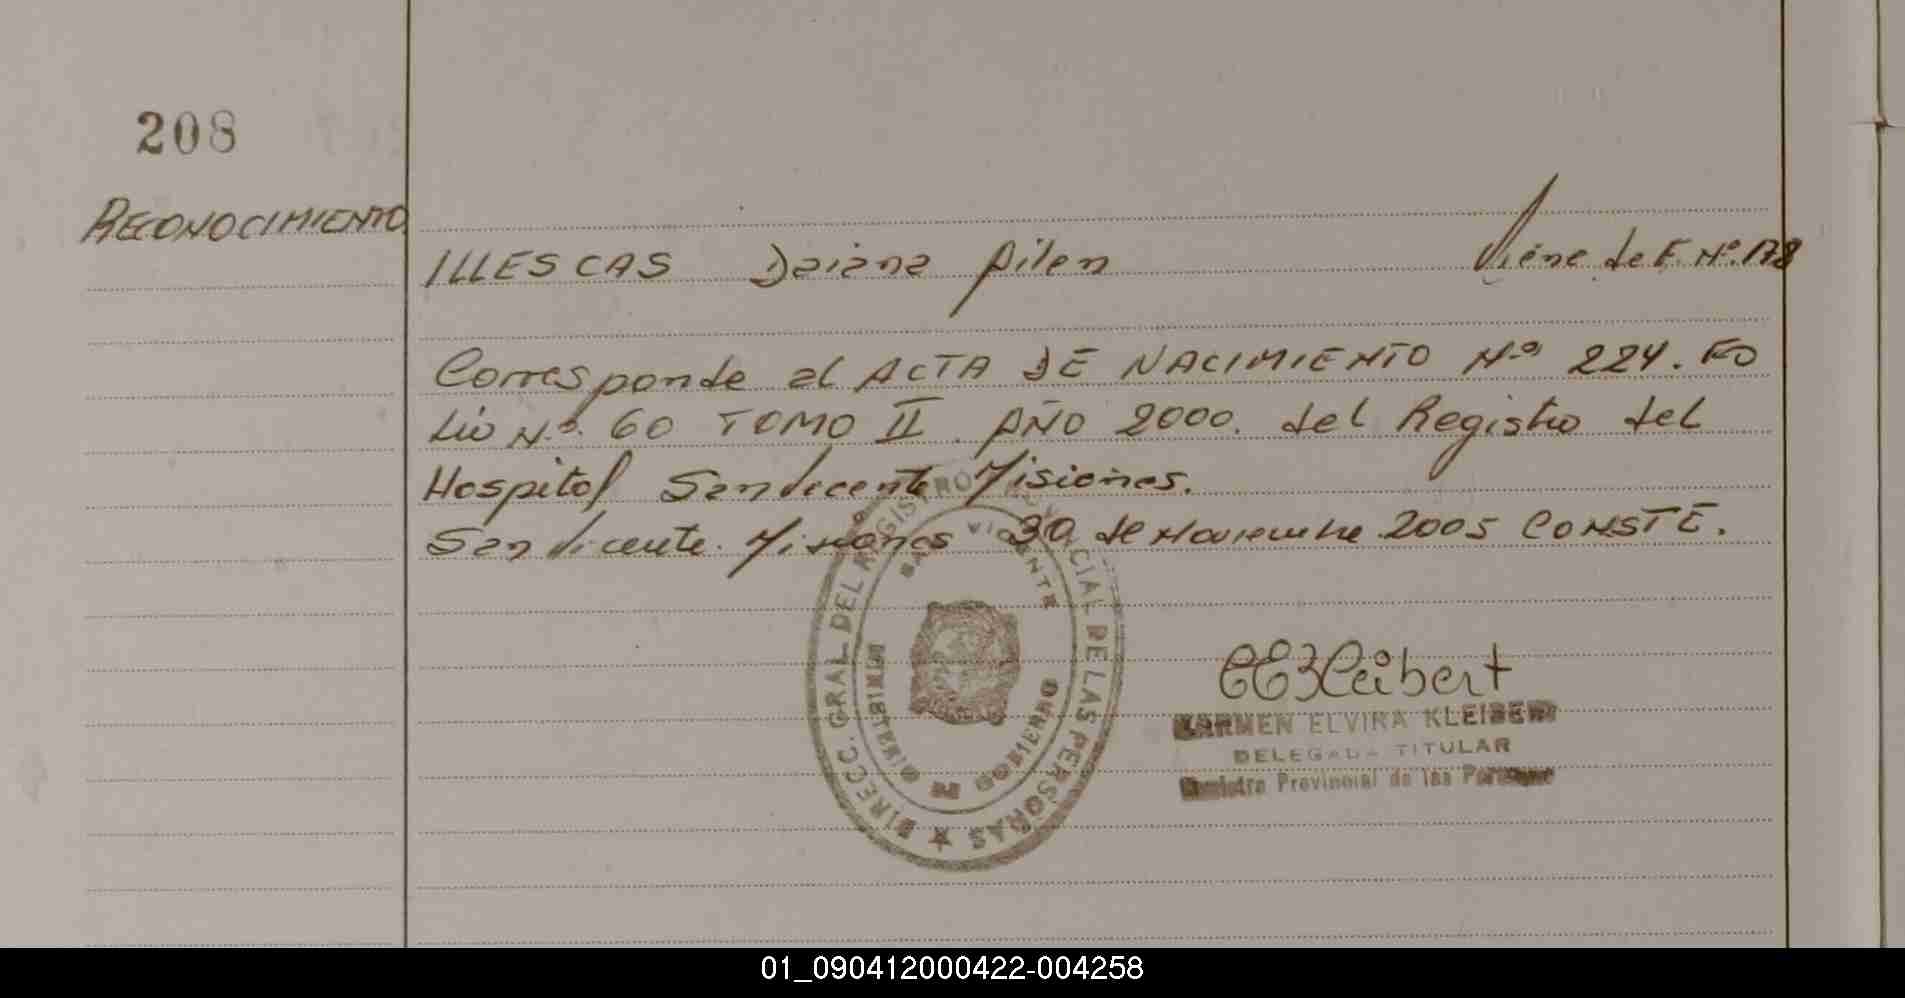 208
RECONOCIMIENTO
ILLESCAS Daiana Ailen
Viene de F. Nº. 178
Corresponde al ACTA DE NACIMIENTO Nº 224. FO
Lio Nº. 60 TOMO II. AÑO 2000. del Registro del
Hospital San Vicente Misiones.
San Vicente. Misiones 30 de Noviembre 2005 CONSTE.
DIRECC. GRAL DEL REGISTRO PROVINCIAL DE LAS PERSONAS
SAN VICENTE
MINISTERIO DE GOBIERNO
CEKleibert
KARMEN ELVIRA KLEIBER
DELEGADA TITULAR
Registro Provincial de las Personas
01_090412000422-004258